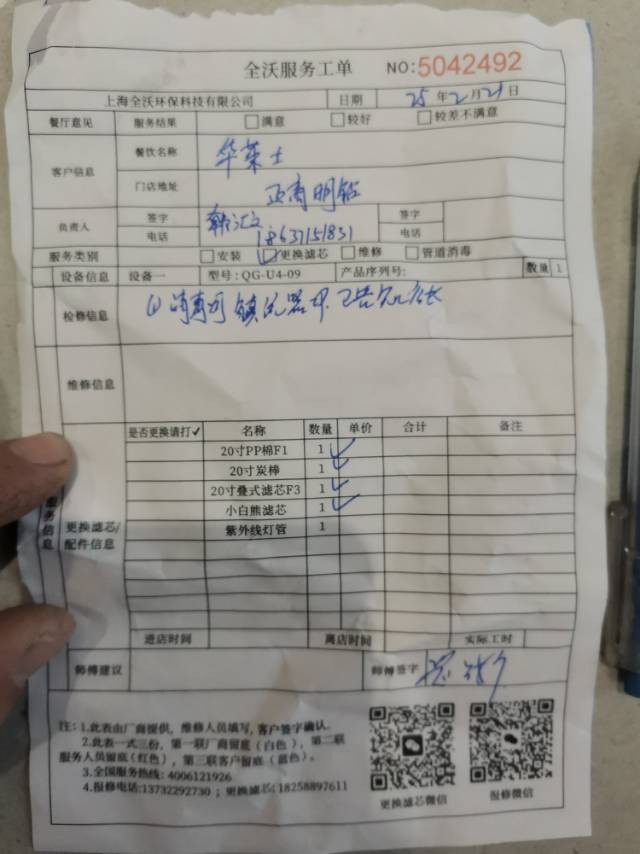 全沃服务工单 NO:5042492
上海全沃环保科技有限公司 日期 25年2月21日
餐厅意见 服务结果 □满意 □较好 □较差不满意
客户信息 餐饮名称 华莱士
门店地址 正商明钻
负责人 签字 签字
电话 18637151831 电话
服务类别 □安装 ☑更换滤芯 □维修 □管道消毒
设备信息 设备一 型号:QG-U4-09 产品序列号: 数量 1
检修信息
维修信息
服务信息
更换滤芯/配件信息
是否更换请打✓ 名称 数量 单价 合计 备注
20寸PP棉F1 1 ✓
20寸炭棒 1 ✓
20寸叠式滤芯F3 1 ✓
小白熊滤芯 1 ✓
紫外线灯管 1
进店时间 离店时间 实际工时
师傅建议 师傅签字
注:1.此表由厂商提供,维修人员填写,客户签字确认.
2.此表一式三份,第一联厂商留底(白色)、第二联
服务人员留底(红色)、第三联客户留底(蓝色)。
3.全国服务热线:4006121926
4.报修电话:13732292730;更换滤芯:18258897611
更换滤芯微信 报修微信